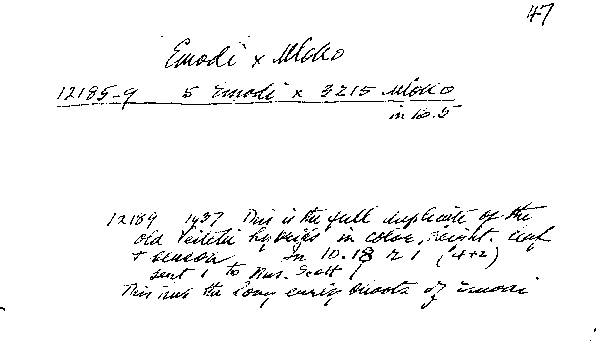 47
Emodi x Mloko
12185-9 5 Emodi x 3215 Mloko
in 10.5
12189 1937 This is the full duplicate of the
old Veitchi hybrids in color, height, leaf
+ season. In 10.18 r 1 (4+2)
sent 1 to Mrs. Scott
This has the long early shoots of emodi